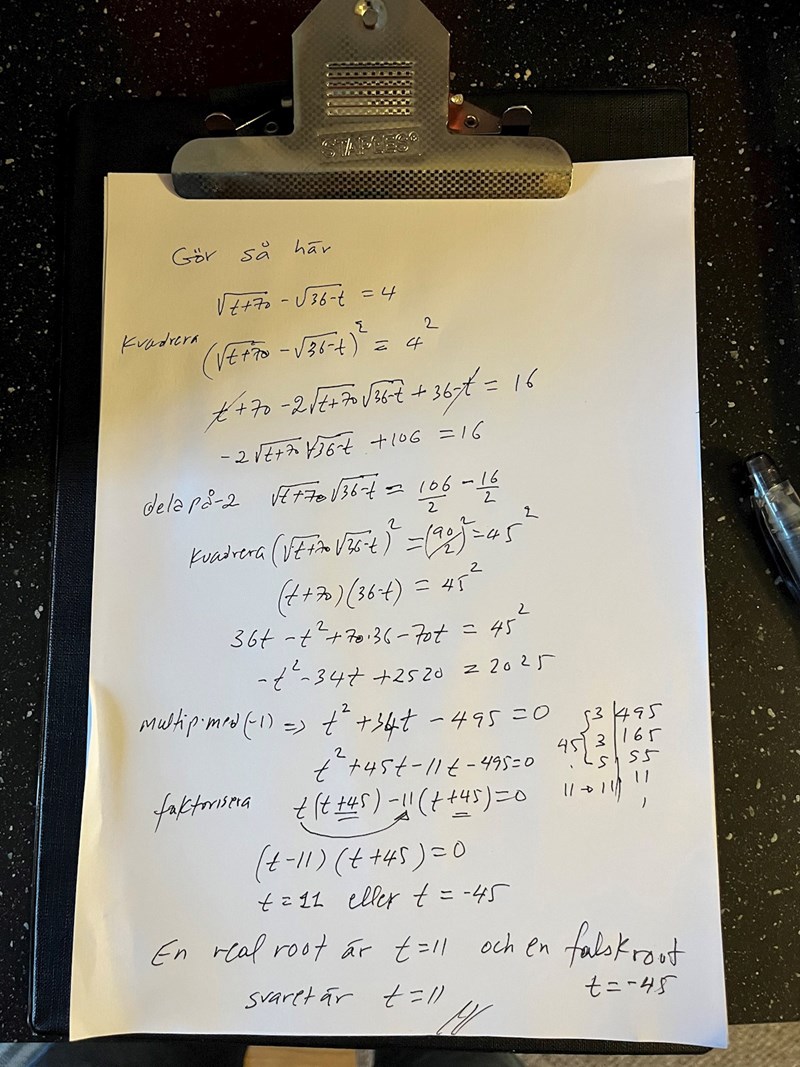 STAPLES®
Gör så här
√t+70 - √36-t = 4
Kvadrera (√t+70 - √36-t)² = 4²
t+70 -2√t+70 √36-t + 36-t = 16
-2√t+70 √36-t +106 = 16
dela på-2 √t+70 √36-t = 106/2 - 16/2
Kvadrera (√t+70 √36-t)² = (90/2)² = 45²
(t+70)(36-t) = 45²
36t - t² + 70·36 - 70t = 45²
-t² - 34t + 2520 = 2025
multip·med (-1) => t² + 34t - 495 = 0
3 | 495
t² + 45t - 11t - 495 = 0
45 3 | 165
5 | 55
faktorisera t(t+45) - 11(t+45) = 0
11 → 11 | 11
1
(t-11)(t+45) = 0
t = 11 eller t = -45
En real root är t=11 och en falsk root
t = -45
svaret är t = 11